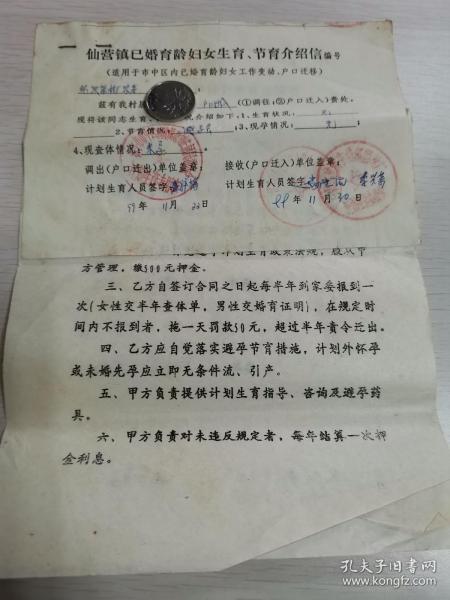 仙营镇已婚育龄妇女生育、节育介绍信编号
(适用于市中区内已婚育龄妇女工作变动、户口迁移)
兹有我村
(①调往;②户口迁入)贵处,
现将该同志生育、 况介绍如下:1、生育状况:
2、节育情况: ;3、现孕情况:无;
4、现查体情况:未孕
调出(户口迁出)单位盖章: 接收(户口迁入)单位盖章:
计划生育人员签字: 计划生育人员签字:
99年11月22日 99年11月30日
计划生育政策法规,服从甲
方管理,缴500元押金。
三、乙方自签订合同之日起每半年到家委报到一
次(女性交半年查体单,男性交婚育证明),在规定时
间内不报到者,拖一天罚款50元,超过半年责令迁出。
四、乙方应自觉落实避孕节育措施,计划外怀孕
或未婚先孕应立即无条件流、引产。
五、甲方负责提供计划生育指导、咨询及避孕药
具。
六、甲方负责对未违反规定者,每年结算一次押
金利息。
孔夫子旧书网
www.kongfz.com